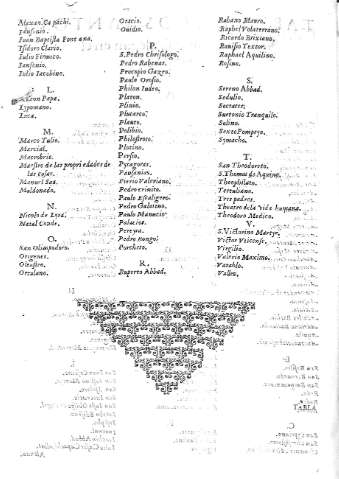 Iuan Baptista Fontano.
Isidoro Clario.
Iulio Firmico.
Iulio Iacobino.
L.
Leon Papa.
Lypomano.
Luca.
M.
Marco Tulio.
Marcial.
Macrobio.
Maestro de las propriedades de
las cosas.
Manuel Saa.
Maldonado.
N.
Nicolo de Lyra.
Natal Conde.
O.
San Olimpiodoro.
Origenes.
Oleastro.
Orculano.
Osorio.
Ouidio.
P.
S. Pedro Chrisologo.
Pedro Rabenas.
Procopio Gazeo.
Paulo Orosio.
Philon Iudio.
Platon.
Plinio.
Plutarco.
Plauto.
Polibio.
Philostroto.
Plotino.
Persio.
Pytagoras.
Pausanias.
Pierio Valeriano.
Pedro Crinito.
Paulo Escaligero.
Pedro Galatino.
Paulo Manucio
Palacios.
Pereyra.
Pedro Bongo.
Porchero.
R.
Ruperto Abbad.
Rabano Mauro.
Raphel Volaterrano.
Ricardo Brixiano.
Rauisio Textor.
Raphael Aquelino.
Rosino.
S.
Sereno Abbad.
Sedulio.
Socrates.
Suetonio Tranquilo.
Solino.
Sexto Pompeyo.
Symacho.
T.
San Theodoreto.
S. Thomas de Aquino.
Theophilato.
Tertuliano.
Tres padres.
Theatro de la vida humana.
Theodoro Medico.
V.
S. Victorino Martyr.
Victor Vticense.
Virgilio.
Valerio Maximo.
Vatablo.
TABLA